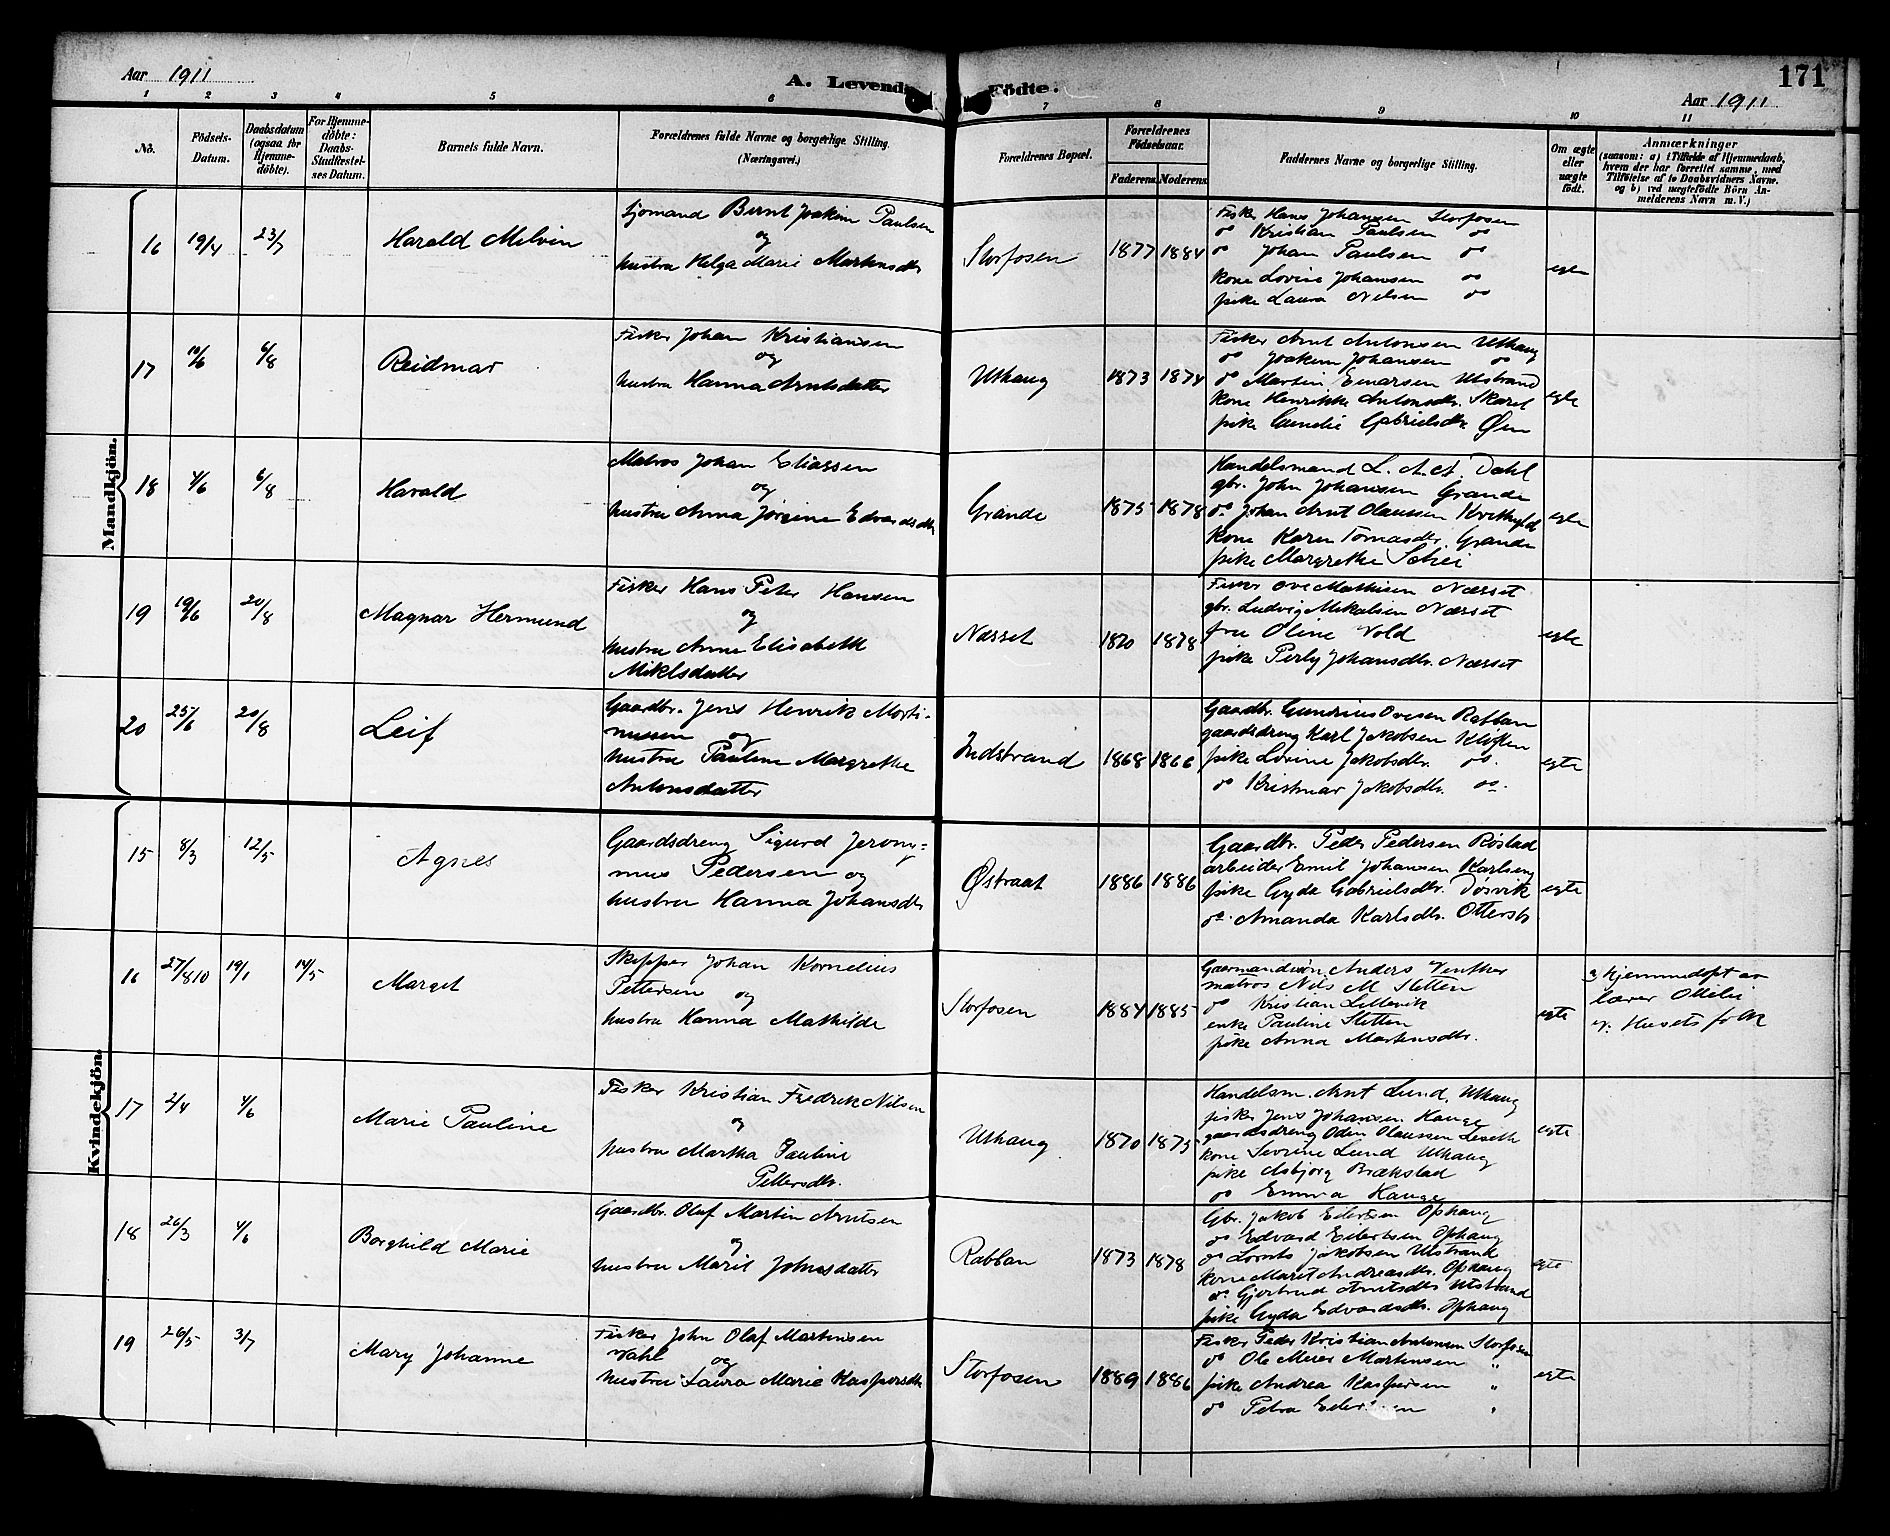 Aar 1911
A. Levende Födte.
171
Aar 1911
1 2 3 4 5 6 7 8 9 10 11
No.
Födsels-Datum.
Daabsdatum (ogsaa for Hjemme-döbte).
For Hjemme-döbte: Daabs-Stadfæstel-ses Datum.
Barnets fulde Navn.
Forældrenes fulde Navne og borgerlige Stilling. (Næringsvei.)
Forældrenes Bopæl.
Forældrenes Födselsaar.
Faderens. Moderens.
Faddernes Navne og borgerlige Stilling.
Om ægte eller uægte födt.
Anmærkninger
(saasom: a) i Tilfælde af Hjemmedaab,
hvem der har forrettet samme, med
Tilföielse af to Daabsvidners Navne.
og b) ved uægtefödte Börn An-
melderens Navn m. V.)
Mandkjön.
16 19/4 23/7 Harald Milvin
Sjømand Bernt Joakim Paulsen
og
hustru Helga Marie Martinsdtr
Storfosen 1877 1884
Fisker Hans Johansen Storfosen
do Kristian Paulsen do
do Johan Paulsen do
kone Lovise Johansen do
pike Laura Nilsen do
egte
17 10/6 6/8 Reidmar
Fisker Johan Kristiansen
og
hustru Hanna Arntsdatter
Uthaug 1873 1874
Fisker Arnt Antonsen Uthaug
do Joakim Johansen do
do Martin Einarsen Utstrand
kone Henrikke Antonsdtr. Skaret
pike Gabrielsdtr. Øien
egte
18 4/6 6/8 Harald
Matros Johan Eliassen
og
hustru Anna Jørgine Edvardsdtr
Grande 1875 1878
Handelsmand L. A. A. Dahl
gbr. John Johansen Grande
do Johan Arnt Olaussen
kone Karen Tomasdtr. Grande
pike Margrethe
egte
19 19/6 20/8 Magnar Hermund
Fisker Hans Peter Hansen
og
hustru Anne Elisabeth
Miklsdatter
Næsset 1870 1878
Fisker Ove Mathisen Næsset
gbr. Ludvig Mikalsen Næsset
fru Oline Vold
pike Perly Johansdtr. Næsset
egte
20 25/6 20/8 Leif
Gaardbr. Jens Henrik Morti-
nussen og
hustru Pauline Margrethe
Antonsdatter
Indstrand 1868 1866
Gaardbr. Gundrius Ovesen Rabban
gaardsdreng Karl Jakobsen Kloften
pike Lovine Jakobsdtr. do.
do Kristmar Jakobsdtr. do.
egte
Kvindekjön.
15 8/3 12/5 Agnes
Gaardsdreng Sigurd Jerony=
mus Pedersen og
hustru Hanna Johansdtr
Østraat 1886 1886
Gaardbr. Peder Pedersen Røstad
arbeider Emil Johansen Karlseng
pike Gyda Gabrielsdtr. Døsvik
do. Amanda Karlsdtr. Ottersbo
egte
16 27/8 10 19/1 14/5 Marget
Skipper Johan Kornelius
Pettersen og
hustru Hanna Mathilde
Storfosen 1884 1885
Gaarmandssøn Anders
matros Nils M Stetten
do Kristian Littlevik
enke Pauline Stetten
pike Anna Martinsdtr.
egte
hjemmedøpt av
lærer
v: Husets folk
17 2/4 4/6 Marie Pauline
Fisker Kristian Fredrik Nilsen
og
hustru Martha Pauline
Pettersdtr.
Uthaug 1870 1875
Handelsm. Arnt Lund, Uthaug
fisker Jens Johansen Hauge
gaardsdreng Odin Olaussen
kone Severine Lund Uthaug
pike Asbjørg Brækstad
do Emma Hauge
egte
18 26/3 4/6 Borghild Marie
Gaardbr. Olaf Martin Arntsen
og
hustru Marit Johnsdatter
Rabban 1873 1878
Gbr. Jakob Eilertsen Ophaug
do Edvard Eilertsen Ophaug
do Lornts Jakobsen Utstrand
kone Maret Andreasdtr. Ophaug
do Gjertrud Arntsdtr Utstrand
pike Gyda Edvardsdtr. Ophaug
egte
19 26/5 3/7 Mary Johanne
Fisker John Olaf Martinsen
Vahl og
hustru Laura Marie Kaspersdtr
Storfosen 1889 1886
Fisker Peder Kristian Antonsen Storfosen
do Ole Meier Martinsen "
pike Andrea Kaspersen "
do Petra Eilertsen "
egte